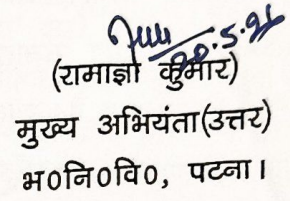 20.5.26
(रामाज्ञा कुमार)
मुख्य अभियंता(उत्तर)
भ0नि0वि0, पटना।